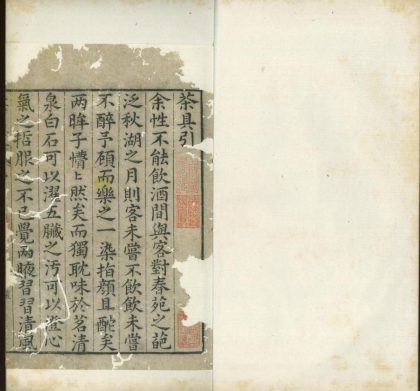 茶具引
余性不能飲酒間與客對春苑之葩
泛秋湖之月則客未嘗不飲飲未嘗
不醉予顧而樂之一染指顔且酡矣
两眸子懵懵然矣而獨耽味於茗清
泉白石可以濯五臟之汚可以澄心
氣之哲服之不已覺兩腋習習清風